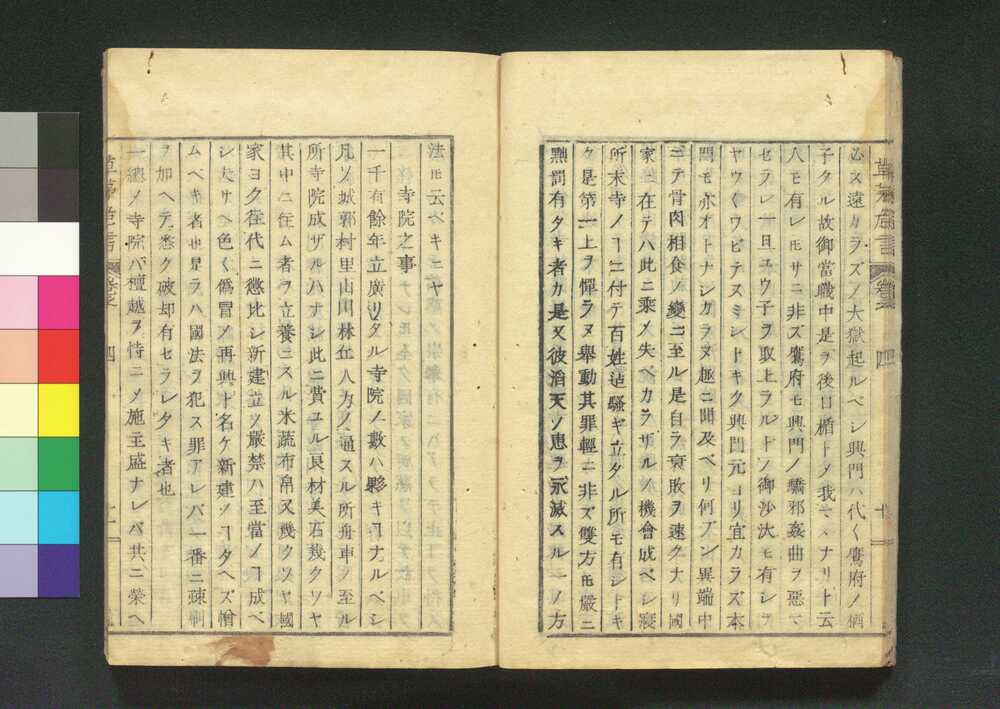 草茅危言
四
必ス遠カラズノ大獄起ルベシ興門ハ代く鷹府ノ猶
子タル故御當職中是ヲ後日楯トメ我マヽナリト云
人モ有レヒサニ非ズ鷹府モ興門ノ驕邪姦曲ヲ惡マ
セラレ一旦ユウ子ヲ取上ラルドノ御沙汰モ有シヲ
ヤウくワビテスミシトキク興門元ヨリ宜カラズ本
門モ亦オトナシカラヌ趣ニ聞及ベリ何ブン異端中
ニテ骨肉相食ノ變ニ至ル是自ラ衰敗ヲ速クナリ國
家ニ在テハ此ニ乘メ失ベカラザルノ機會成ベシ寢
所末寺ノヿニ付テ百姓迠騒ギ立タル所モ有シトキ
ク是第一上ヲ憚ラヌ舉動其罪輕ニ非ズ雙方ヒ嚴ニ
黜罰有タキ者カ是又彼滔天ノ惠ヲ永滅スル一ノ方
法ヒ云ベキニヤ
寺院之事
一千有餘年立廣リタル寺院ノ數ハ夥キヿナルベシ
凡ソ城郭村里山川林丘人力ノ通スル所舟車ノ至ル
所寺院成ザルハナシ此ニ費ユル良材美石幾クツヤ
其中ニ住ム者ヲ立養ニスル米蔬布帛又幾クツヤ國
家ヨク徃代ニ懲比シ新建立ノ嚴禁ハ至當ノヿ成ベ
シ夫サヘ色く僞冒メ再興ト名ケ新建ノヿタヘズ憎
ムベキ者也是ラハ國法ヲ犯ス罪アレバ一番ニ疎剔
ヲ加ヘテ悉ク破却有セラレタキ者也
一總ノ寺院バ檀越ヲ恃ニメ施主盛ナレバ共ニ榮ヘ
四